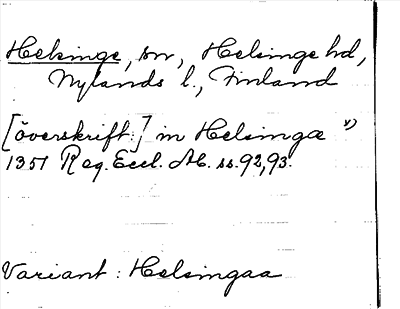 Helsinge, sn, Helsinge hd,
Nylands l., Finland
[överskrift:] in Helsingæ v)
1351 Reg. Eccl. Ab. ss. 92, 93.
Variant: Helsingaa